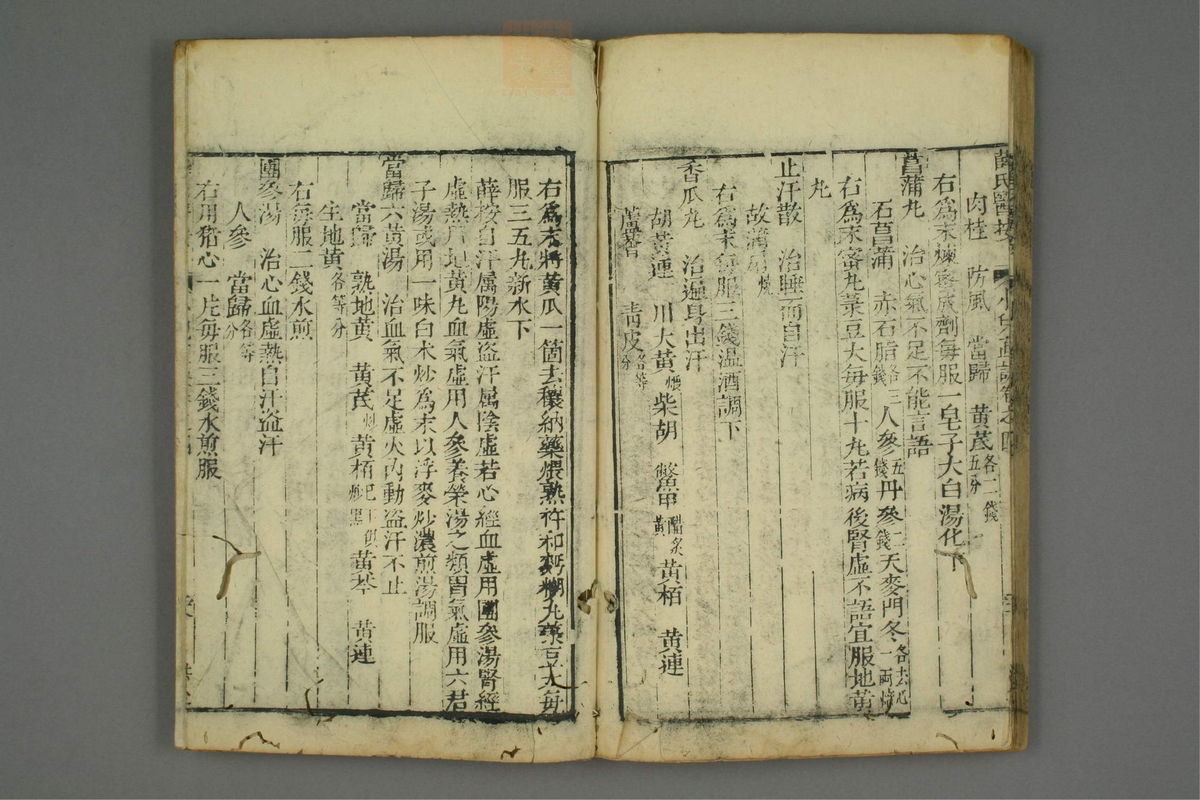 薛氏醫按 小兒直訣卷之四
肉桂 防風 當歸 黃芪各二錢五分
右爲末煉蜜成劑每服一皂子大白湯化下
菖蒲丸 治心氣不足不能言語
石菖蒲 赤石脂各三錢 人參五錢 丹參二錢 天麥門冬各去心一兩焙
右爲末蜜丸菉豆大每服十丸若病後腎虛不語宜服地黃
丸
止汗散 治睡而自汗
故蒲扇燒
右爲末每服三錢溫酒調下
香瓜丸 治遍身出汗
胡黃連 川大黃煨 柴胡 鱉甲醋炙黃 黃栢 黃連
蘆薈 靑皮各等分
右爲末將黃瓜一箇去穰納藥煨熟杵和麪糊丸菉豆大每
服三五丸新水下
薛按自汗屬陽虛盜汗屬陰虛若心經血虛用團參湯腎經
虛熱用地黃丸血氣虛用人參養榮湯之類胃氣虛用六君
子湯或用一味白朮炒爲末以浮麥炒濃煎湯調服
當歸六黃湯 治血氣不足虛火內動盜汗不止
當歸 熟地黃 黃芪炒 黃栢炒黑 黃芩 黃連
生地黃各等分
右每服二錢水煎
團參湯 治心血虛熱自汗盜汗
人參 當歸各等分
右用猪心一片每服三錢水煎服